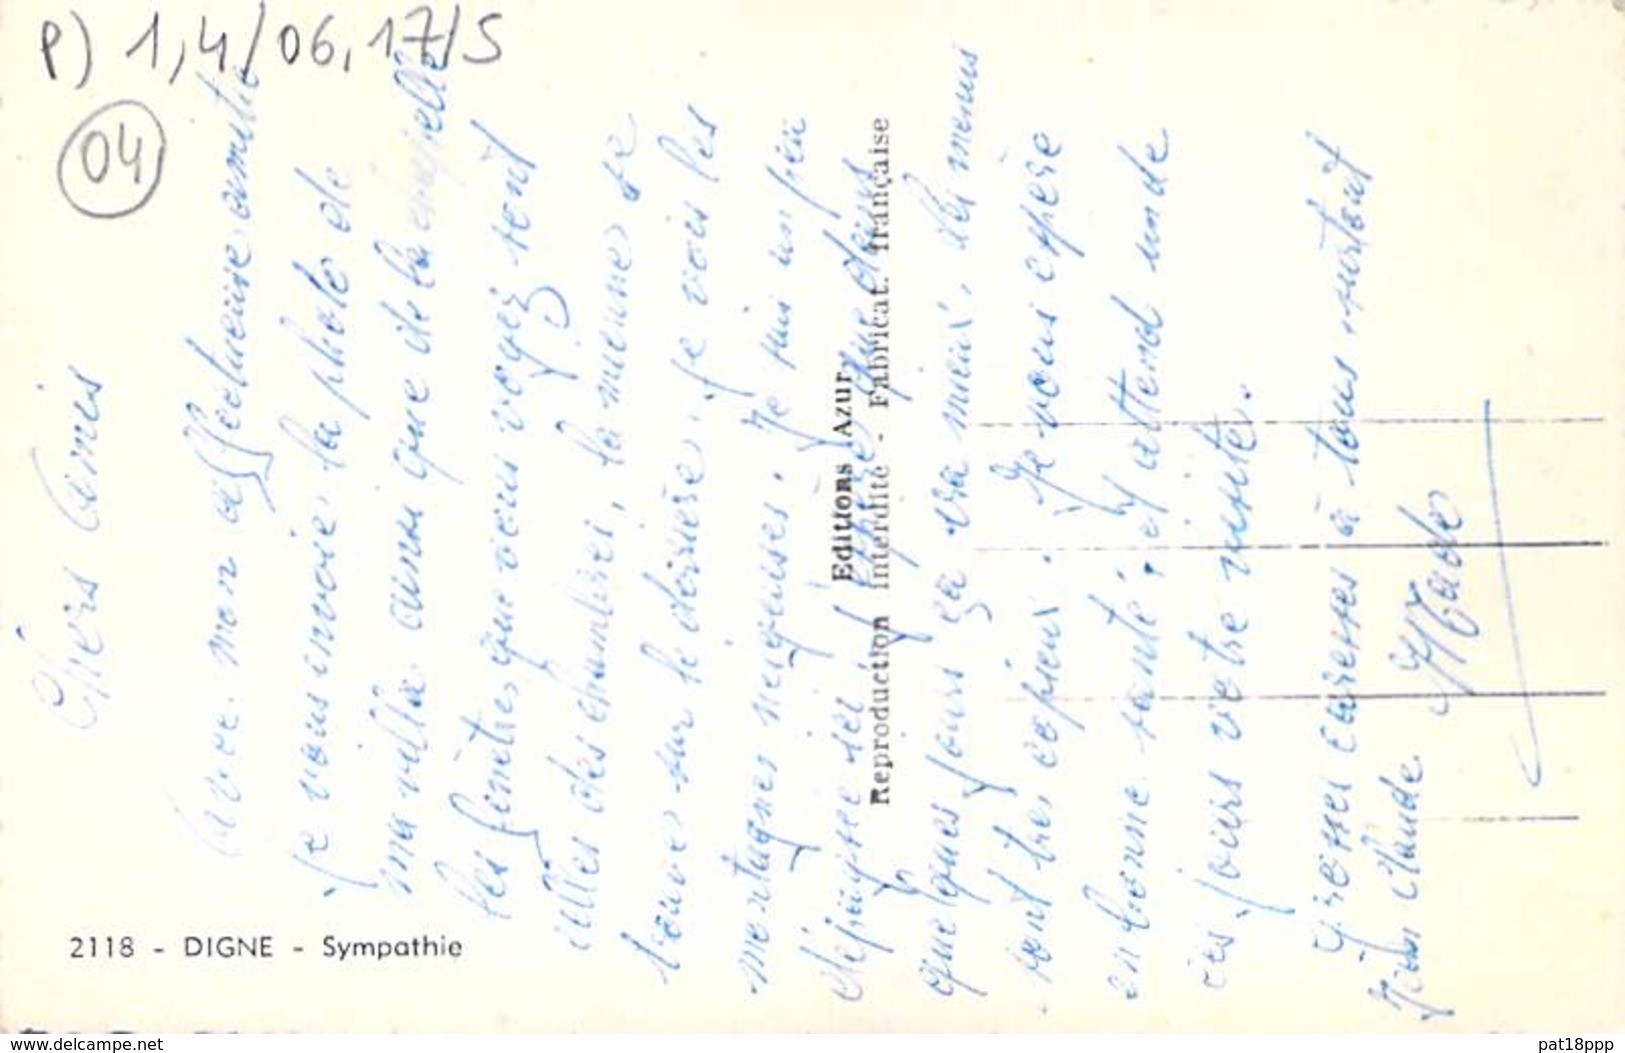 P) 1,4/06,17/S
04
Chers Amis
Avec mon affectueuse amitié
je vous envoie la photo de
ma villa ainsi que de la chapelle
les fenêtres que vous voyez sont
celles des chambres, la mienne se
trouve sur le derrière. je vois les
montagnes neigeuses. Je suis un peu
dépaysée ici j'espère que dans
quelques jours ça ira mieux. les menus
sont très copieux. Je vous espère
en bonne santé, et j'attend un de
ces jours votre visite.
Grosses caresses à tous surtout
Jean Claude.
Mado
Editions Azur
Reproduction Interdite - Fabricat. française
2118 - DIGNE - Sympathie
www.delcampe.net
pat18ppp